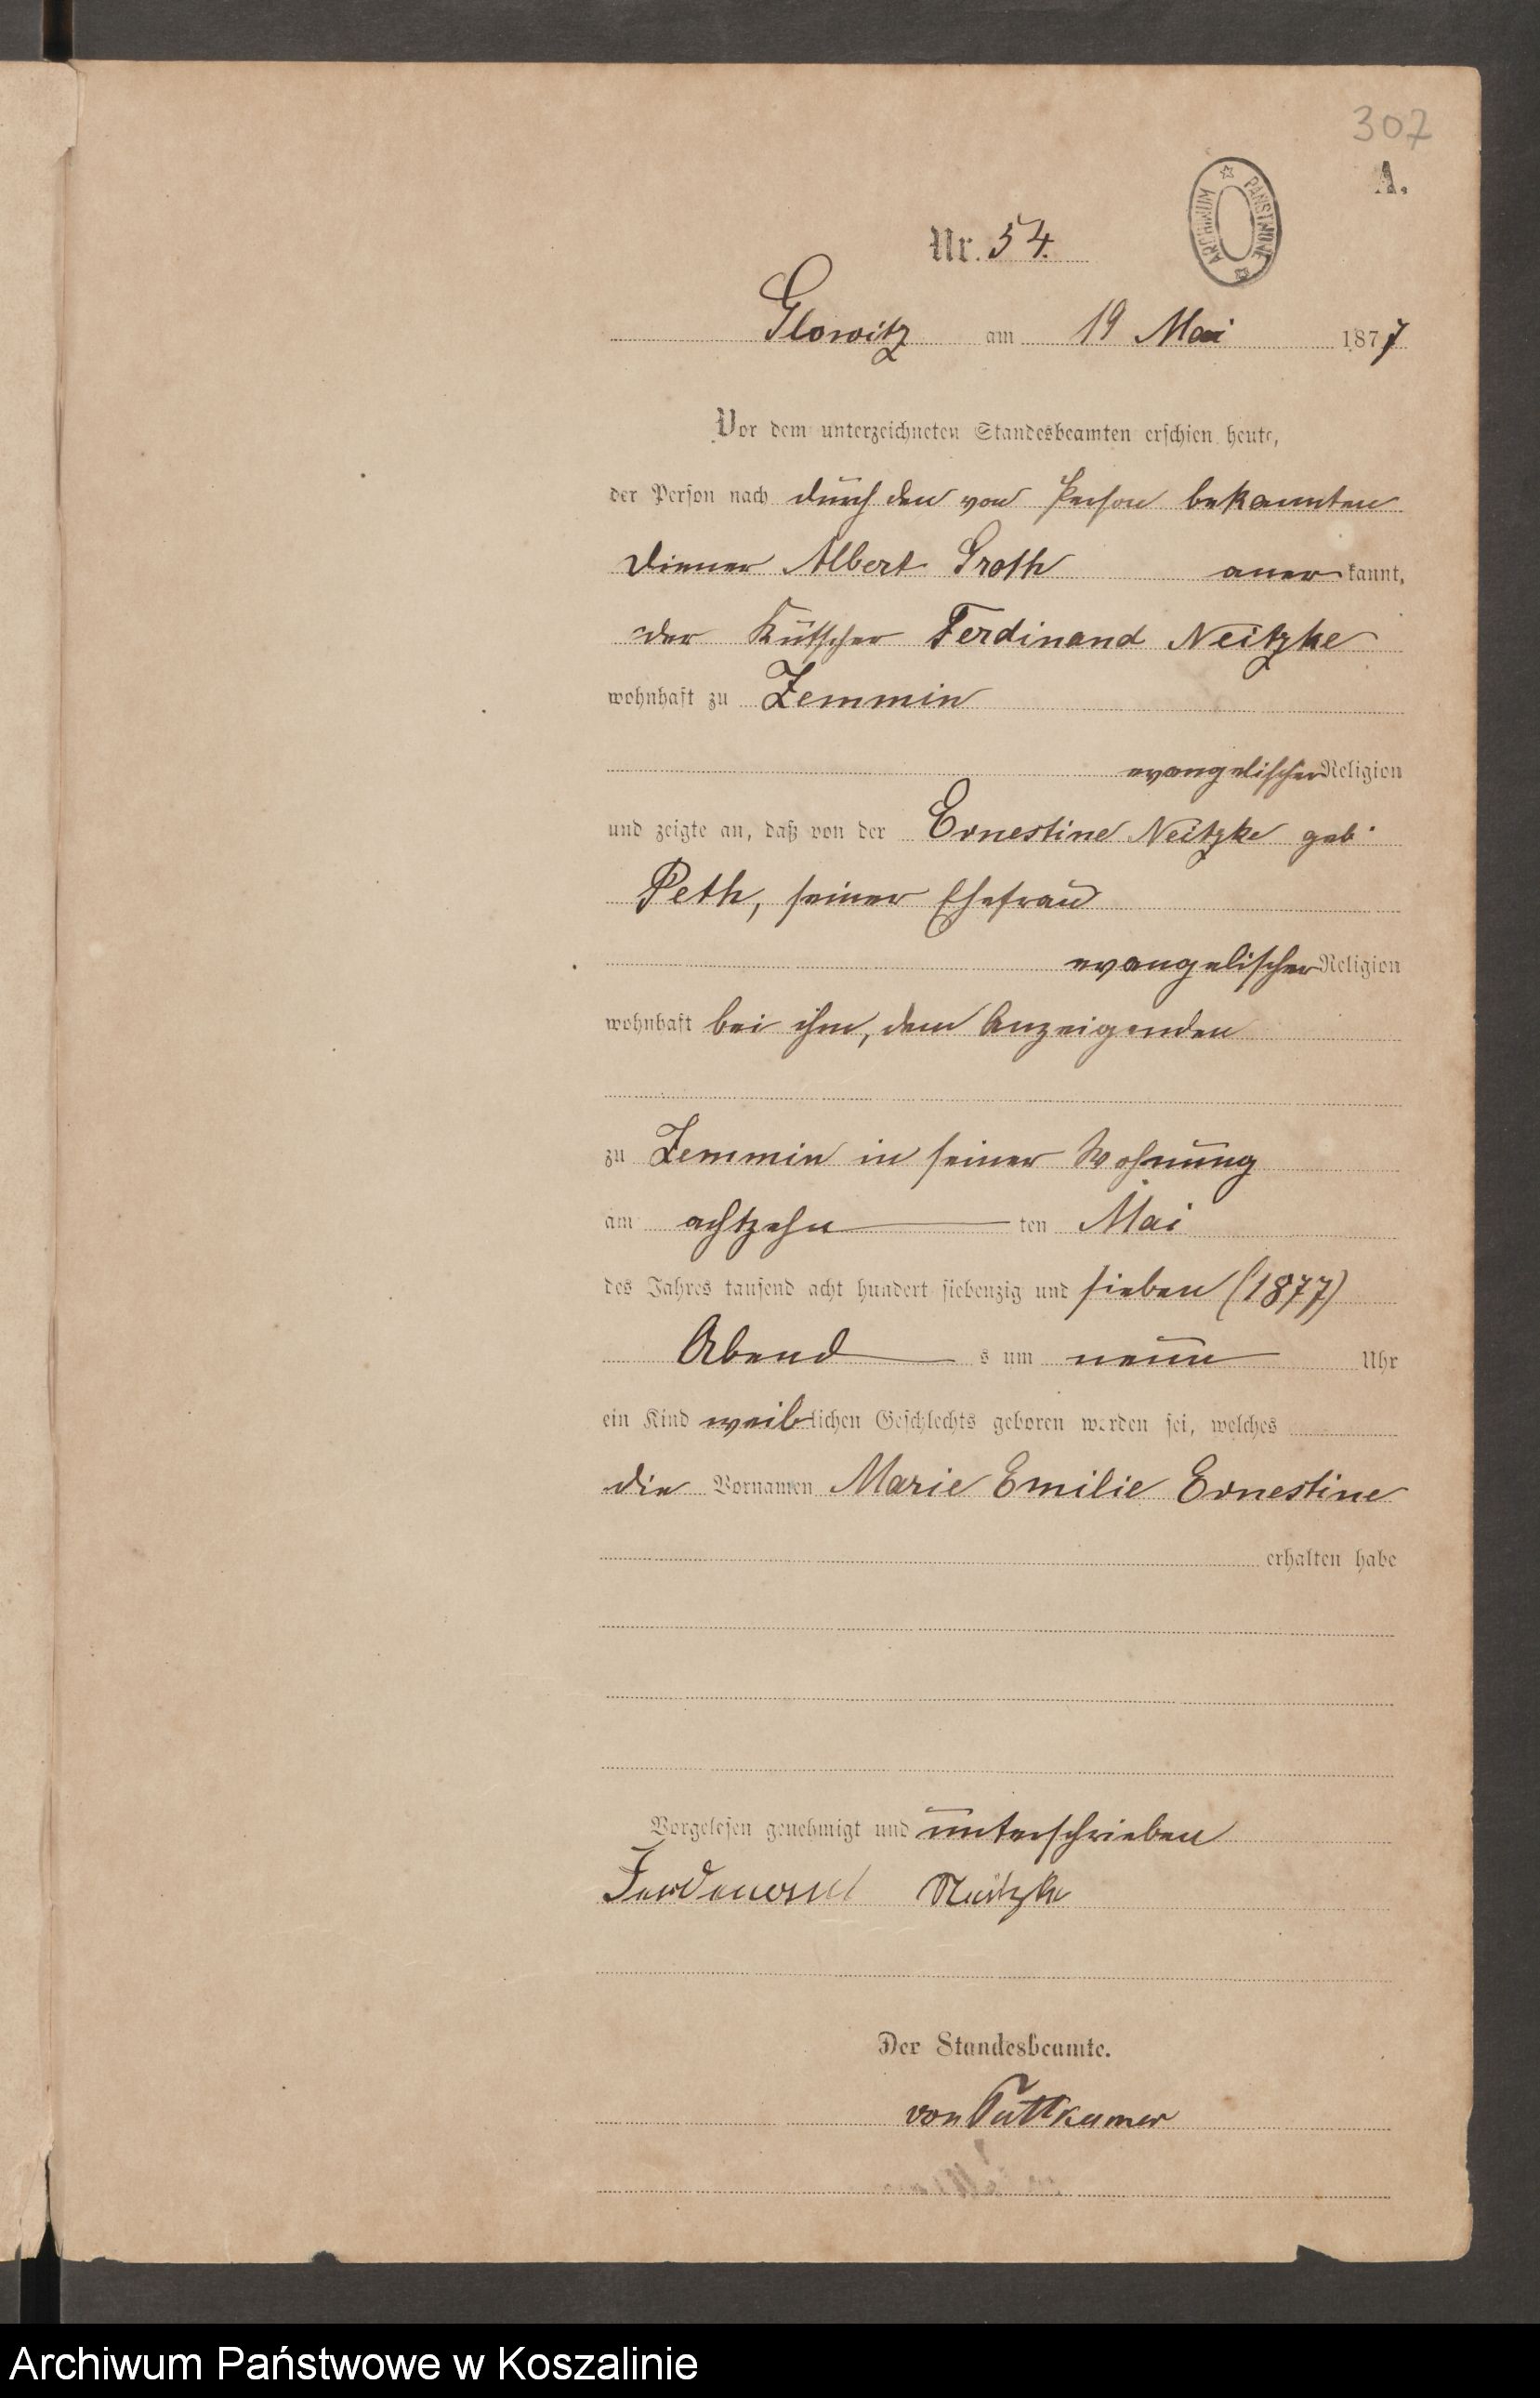 307
A.
ARCHIWUM PAŃSTWOWE
Nr. 54.
Glowitz am 19 Mai 1877
Vor dem unterzeichneten Standesbeamten erschien heute,
der Person nach durch den von Person bekannten
Diener Albert Groth anerkannt,
der Kutscher Ferdinand Neitzke
wohnhaft zu Zemmin
evangelischer Religion
und zeigte an, daß von der Ernestine Neitzke geb.
Peth, seiner Ehefrau
evangelischer Religion
wohnhaft bei ihm, dem Anzeigenden
zu Zemmin in seiner Wohnung
am achtzehn ten Mai
des Jahres tausend acht hundert siebenzig und sieben (1877)
Abend s um neun Uhr
ein Kind weiblichen Geschlechts geboren worden sei, welches
die Vornamen Marie Emilie Ernestine
erhalten habe
Vorgelesen genehmigt und unterschrieben
Ferdinand Neitzke
Der Standesbeamte.
von Puttkamer
Archiwum Państwowe w Koszalinie